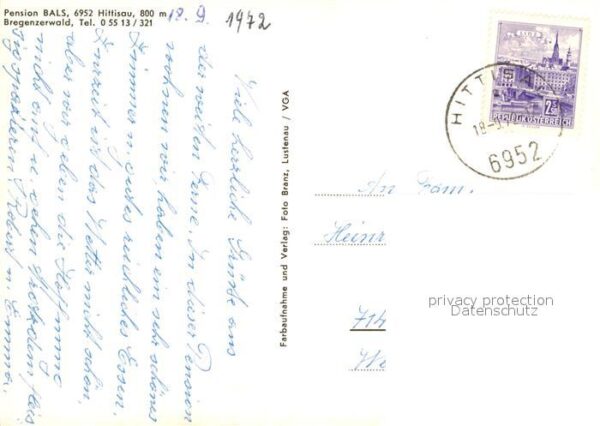 Pension BALS, 6952 Hittisau, 800 m
Bregenzerwald, Tel. 0 55 13 / 321
18. 9. 1972
Viele herzliche Grüße aus
der weiten Ferne. In dieser Pension
wohnen wir haben ein sehr schönes
Zimmer u. gutes reichliches Essen.
Zurzeit ist das Wetter nicht schön,
aber wir geben die Hoffnung
nicht auf u. sehen trotzdem
Robert u. Emma.
Farbaufnahme und Verlag: Foto Branz, Lustenau / VGA
LINZ
2.50
REPUBLIK ÖSTERREICH
HITTISA
18.-9.
6952
An Fam.
Heinr
714
We
privacy protection
Datenschutz